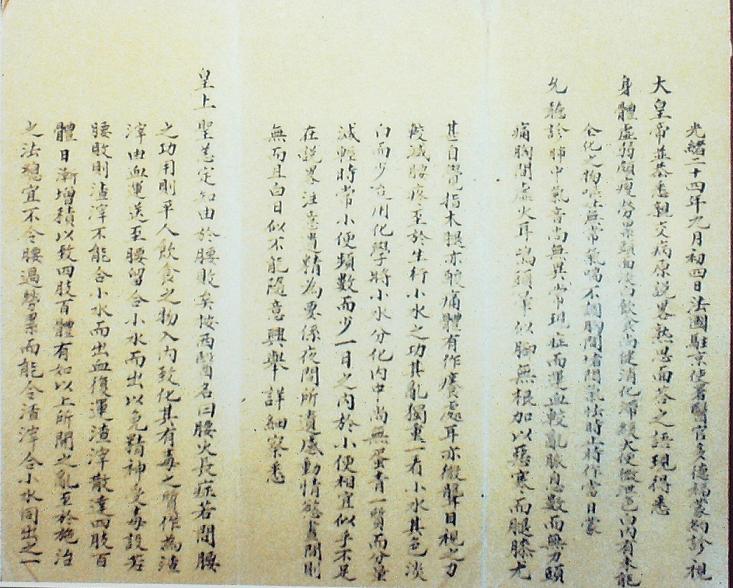 光緒二十四年九月初四日法國駐京使署醫官多德福蒙約診視
大皇帝並恭悉親交病原說畧熟思面答之語現得悉
身體虛弱頗瘦勞累頭面淡白飲食尚健消化滯緩大便微泄色白內有未能
全化之物嘔無常氣喘不調胸間堵悶氣怯時止時作當日蒙
允聽診肺中氣音尚無異常現症而運血較亂脈息數而無力頭
痛胸間虛火耳鳴頭暈似腳無根加以惡寒而腿膝尤
甚自覺指木腿亦酸痛體有作癢處耳亦微聾目視之力
較減腰疼至於生行小水之功其亂獨重一看小水其色淡
白而少迨用化學將小水分化內中尚無蛋青一質而分量
減輕時常小便頻數而少一日之內於小便相宜似乎不足
在說畧注意遺精為要係夜間所遺感動情慾晝間則
無而且白日似不能隨意興舉詳細察悉
皇上聖恙定知由於腰敗矣按西醫名曰腰火長症若問腰
之功用則平人飲食之物入內致化其有毒之質作為渣
滓由血運送至腰留合小水而出以免精神受毒設若
腰敗則渣滓不能合小水而出血復運渣滓散達四肢百
體日漸增積以致四肢百體有如以上所開之亂至於施治
之法總宜不令腰過勞累而能令渣滓合小水同出之一